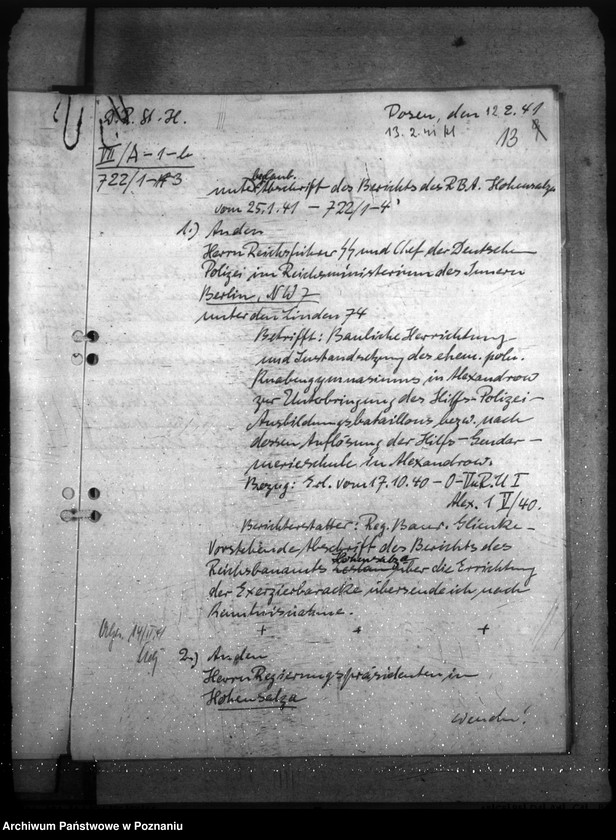 D. R. St. H.
Posen, den 12.2.41
13.2.41
13
VII/A-1-b
722/1-3
beglaub.
unter Abschrift des Berichts des R.B.A. Hohensalza
vom 25.1.41 - 722/1-4
1.) An den
Herrn Reichsführer SS und Chef der Deutschen
Polizei im Reichsministerium des Innern
Berlin, NW 7
unter den Linden 74
Betrifft: Bauliche Herrichtung
und Instandsetzung des ehem. poln.
Knabengymnasiums in Alexandrow
zur Unterbringung des Hilfs-Polizei-
Ausbildungsbataillons bezw. nach
dessen Auflösung der Hilfs-Gendar-
merieschule in Alexandrow.
Bezug: Erl. vom 17.10.40 - O-
Alex. 1 V/40.
Berichterstatter: Reg. Baur. Glienke -
Vorstehende Abschrift des Berichts des
Reichsbauamts Hohensalza über die Errichtung
der Exerzierbaracke übersende ich nach
Kenntnisnahme.
+ + +
2.) An den
Herrn Regierungspräsidenten in
Hohensalza
wenden!
Archiwum Państwowe w Poznaniu